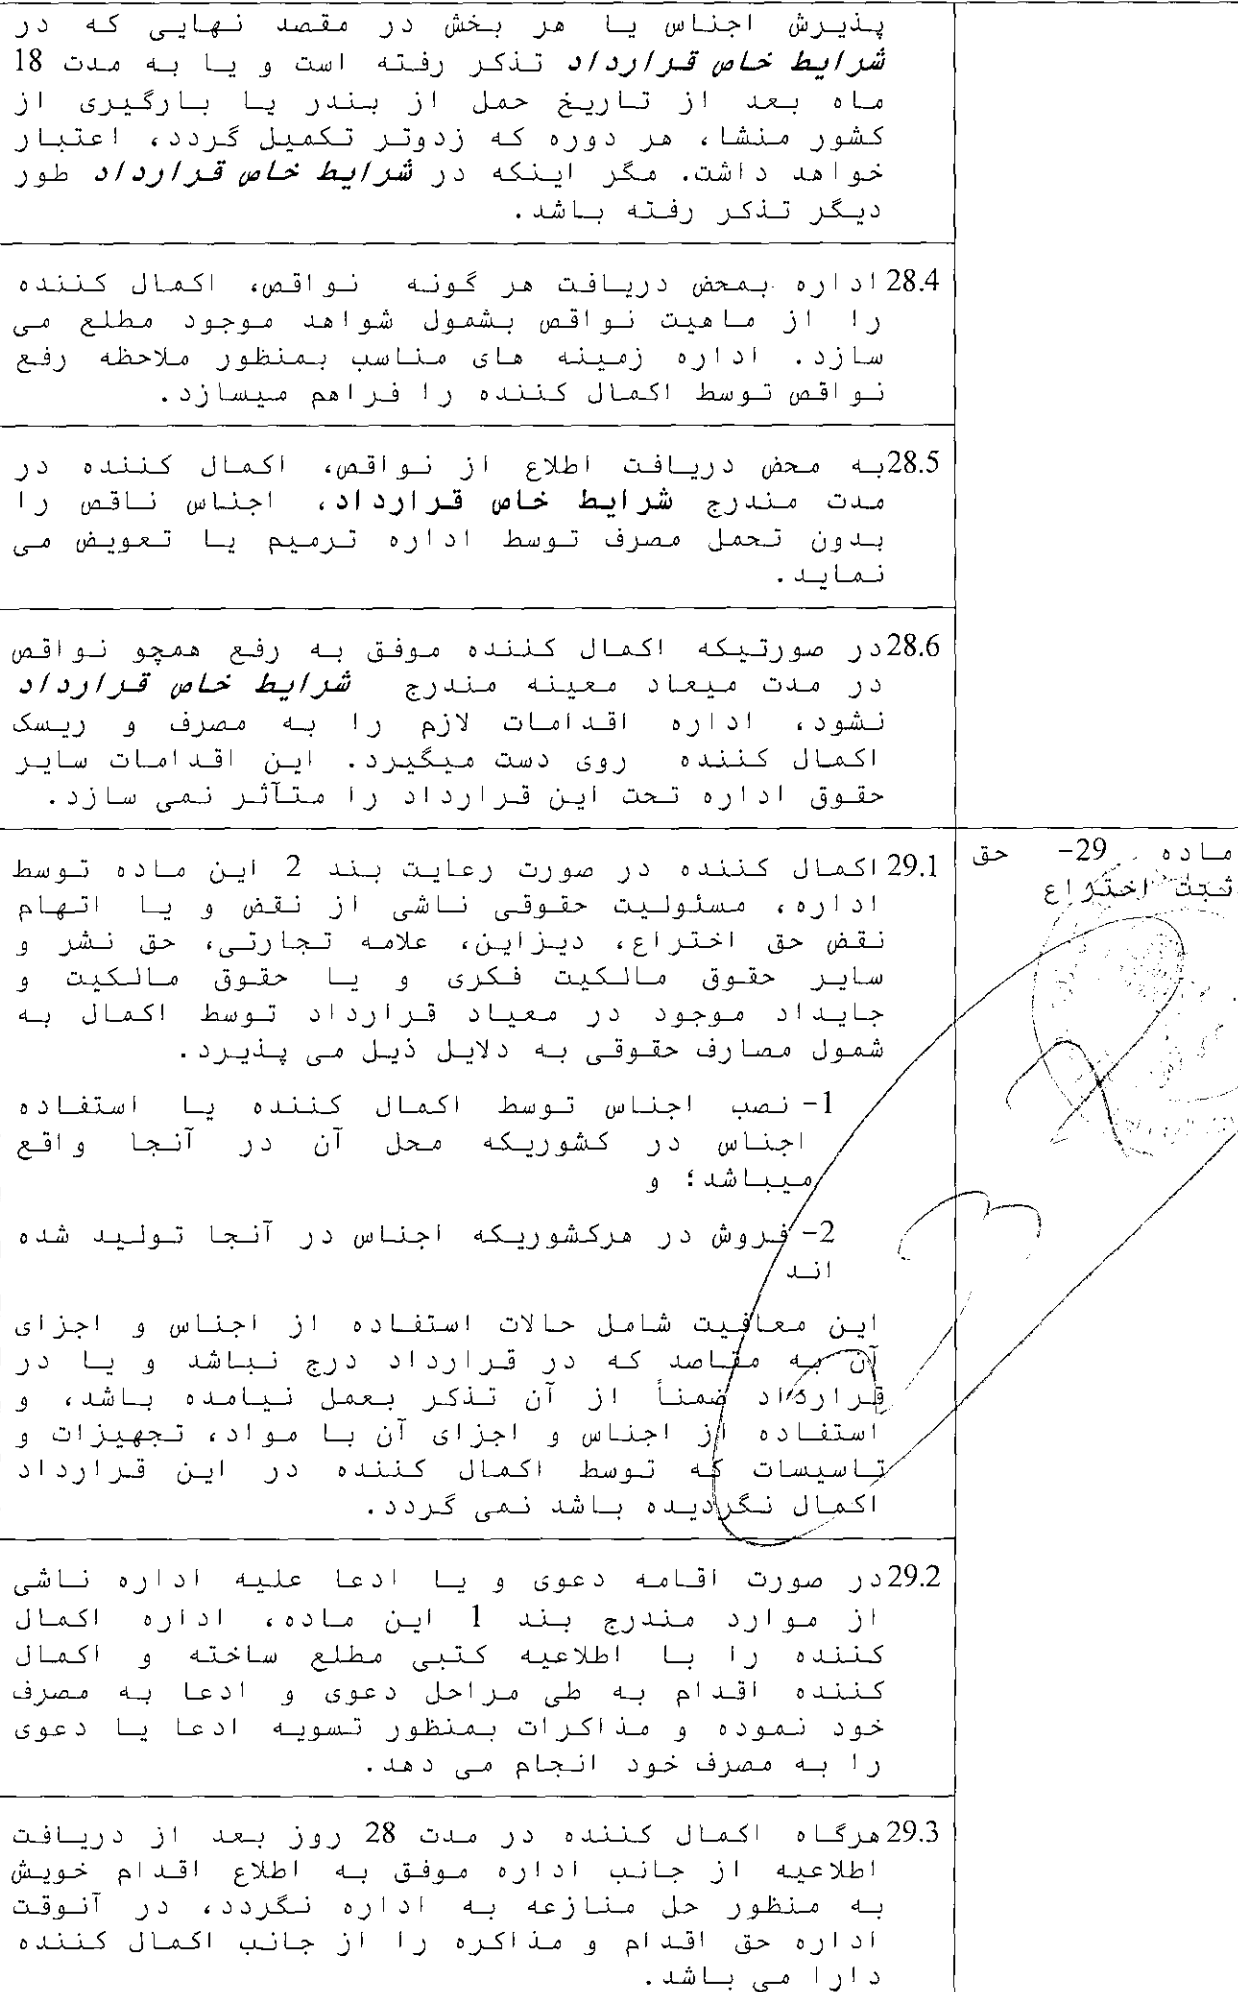 پذیرش اجناس یا هر بخش در مقصد نهایی که در
شرایط خاص قرارداد تذکر رفته است و یا به مدت 18
ماه بعد از تاریخ حمل از بندر یا بارگیری از
کشور منشا، هر دوره که زدوتر تکمیل گردد، اعتبار
خواهد داشت. مگر اینکه در شرایط خاص قرارداد طور
دیگر تذکر رفته باشد.
28.4 اداره بمحض دریافت هر گونه نواقص، اکمال کننده
را از ماهیت نواقص بشمول شواهد موجود مطلع می
سازد. اداره زمینه های مناسب بمنظور ملاحظه رفع
نواقص توسط اکمال کننده را فراهم میسازد.
28.5 به محض دریافت اطلاع از نواقص، اکمال کننده در
مدت مندرج شرایط خاص قرارداد، اجناس ناقص را
بدون تحمل مصرف توسط اداره ترمیم یا تعویض می
نماید.
28.6 در صورتیکه اکمال کننده موفق به رفع همچو نواقص
در مدت میعاد معینه مندرج شرایط خاص قرارداد
نشود، اداره اقدامات لازم را به مصرف و ریسک
اکمال کننده روی دست میگیرد. این اقدامات سایر
حقوق اداره تحت این قرارداد را متآثر نمی سازد.
ماده 29- حق
ثبت اختراع
29.1 اکمال کننده در صورت رعایت بند 2 این ماده توسط
اداره، مسئولیت حقوقی ناشی از نقض و یا اتهام
نقض حق اختراع، دیزاین، علامه تجارتی، حق نشر و
سایر حقوق مالکیت فکری و یا حقوق مالکیت و
جایداد موجود در معیاد قرارداد توسط اکمال به
شمول مصارف حقوقی به دلایل ذیل می پذیرد.
1- نصب اجناس توسط اکمال کننده یا استفاده
اجناس در کشوریکه محل آن در آنجا واقع
میباشد؛ و
2- فروش در هرکشوریکه اجناس در آنجا تولید شده
اند
این معافیت شامل حالات استفاده از اجناس و اجزای
آن به مقاصد که در قرارداد درج نباشد و یا در
قرارداد ضمناً از آن تذکر بعمل نیامده باشد، و
استفاده از اجناس و اجزای آن با مواد، تجهیزات و
تاسیسات که توسط اکمال کننده در این قرارداد
اکمال نگردیده باشد نمی گردد.
29.2 در صورت اقامه دعوی و یا ادعا علیه اداره ناشی
از موارد مندرج بند 1 این ماده، اداره اکمال
کننده را با اطلاعیه کتبی مطلع ساخته و اکمال
کننده اقدام به طی مراحل دعوی و ادعا به مصرف
خود نموده و مذاکرات بمنظور تسویه ادعا یا دعوی
را به مصرف خود انجام می دهد.
29.3 هرگاه اکمال کننده در مدت 28 روز بعد از دریافت
اطلاعیه از جانب اداره موفق به اطلاع اقدام خویش
به منظور حل منازعه به اداره نگردد، در آنوقت
اداره حق اقدام و مذاکره را از جانب اکمال کننده
دارا می باشد.